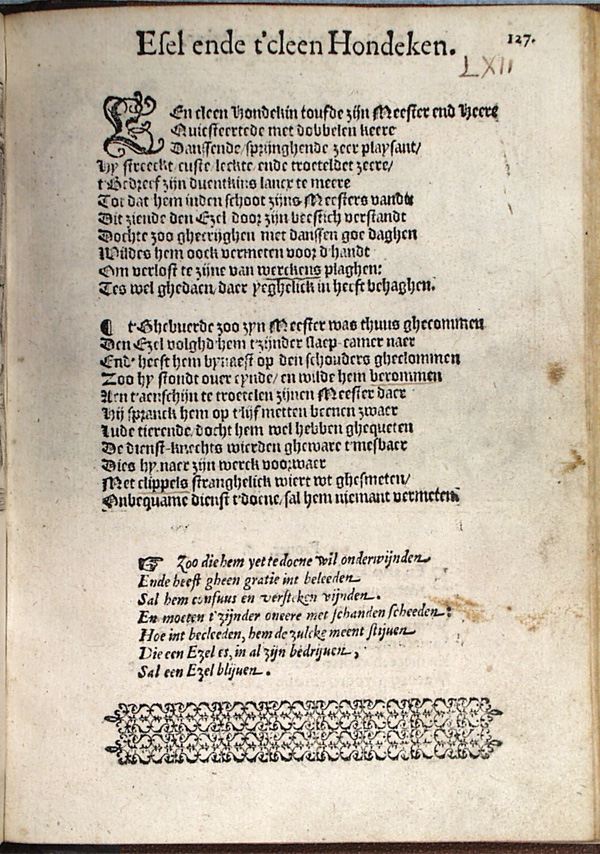 Esel ende t'cleen Hondeken.
127.
LXII
EEn cleen Hondekin toufde zijn Meester end Heere
Quicsteertede met dobbelen keere
Danssende/sprijnghende zeer playsant/
Hy streeckt/custe/leckte/ende troeteldet zeere/
t'Bedreef zijn duentkins lancx te meere
Tot dat hem inden schoot zijns Meesters vandt
Dit ziende den Ezel door zijn beestich verstandt
Dochte zoo ghecrijghen met danssen goe daghen
Wildes hem oock vermeten voor d'handt
Om verlost te zijne van werckens plaghen:
Tes wel ghedaen/daer yeghelick in heeft behaghen.
¶ t'Ghebuerde zoo zyn Meester was thuus ghecommen
Den Ezel volghd'hem t'zijnder slaep-camer naer
End' heeft hem bynaest op den schouders gheclommen
Zoo hy stondt over eynde/en wilde hem berommen
Aen t'aenschijn te troetelen zijnen Meester daer
Hij spranck hem op t'lijf metten beenen zwaer
Lude tierende/docht hem wel hebben ghequeten
De dienst-knechts wierden gheware t'mesbaer
Dies hy naer zijn werck voorwaer
Met clippels stranghelick wiert wt ghesmeten/
Onbequame dienst t'doene/sal hem niemant vermeten
☞ Zoo die hem yet te doene wil onderwijnden
Ende heeft gheen gratie int beleeden
Sal hem confuus en versteken vijnden.
En moeten t'zijnder oneere met schanden scheeden:
Hoe int becleeden, hem de zulcke meent stijven
Die een Ezel es, in al zijn bedrijven,
Sal een Ezel blijven.